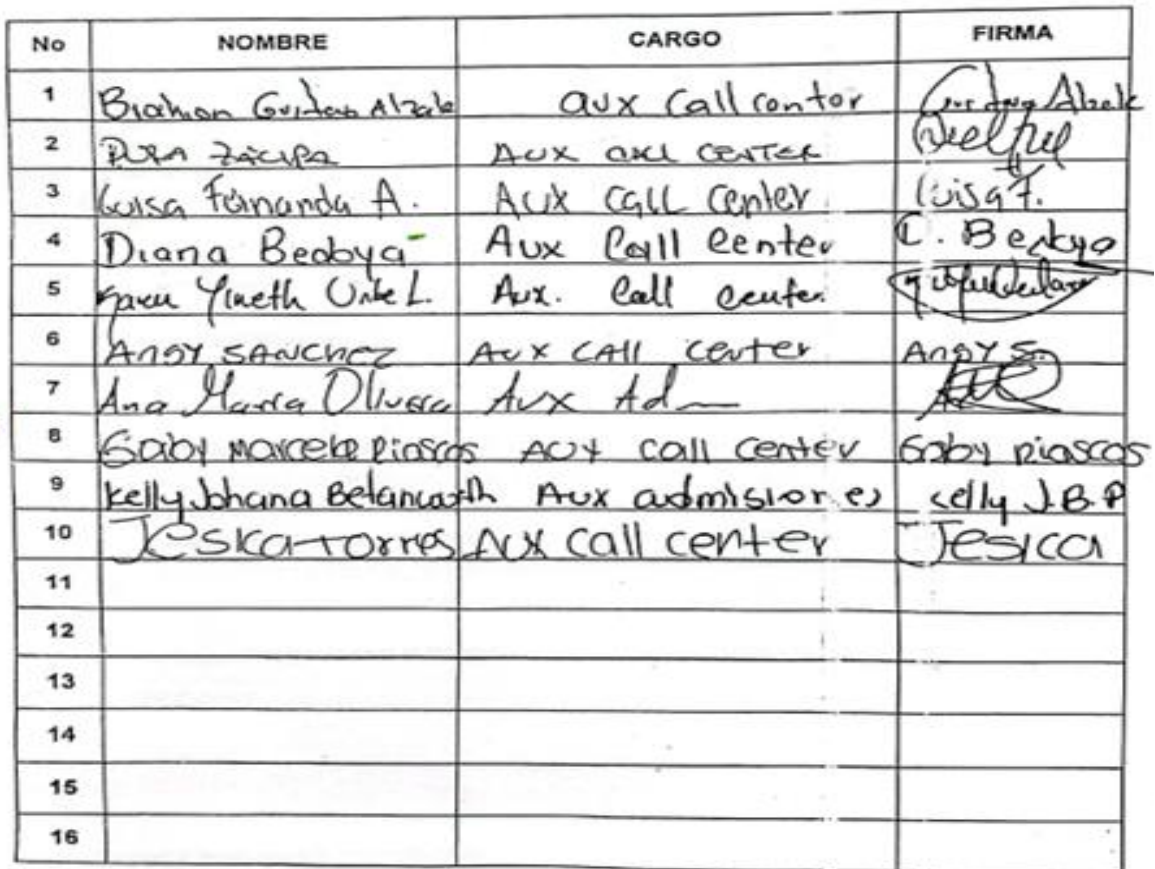 No NOMBRE CARGO FIRMA
1 Brahian Gustavo Alzate aux Call center Gustavo Alzate
2 Zácipa AUX CALL CENTER
3 Luisa Fernanda A. AUX CALL Center Luisa F.
4 Diana Bedoya Aux Call Center D. Bedoya
5 Karen Yineth Uribe L. Aux. Call center
6 ANGY SANCHEZ AUX CALL center ANGY S.
7 Ana Maria Olivera Aux Ad
8 Gaby Marcela Riascos AUX call center Gaby Riascos
9 Kelly Johana Betancourth Aux admisiones Kelly J.B.P
10 Jesica Torres AUX call center Jesica
11
12
13
14
15
16